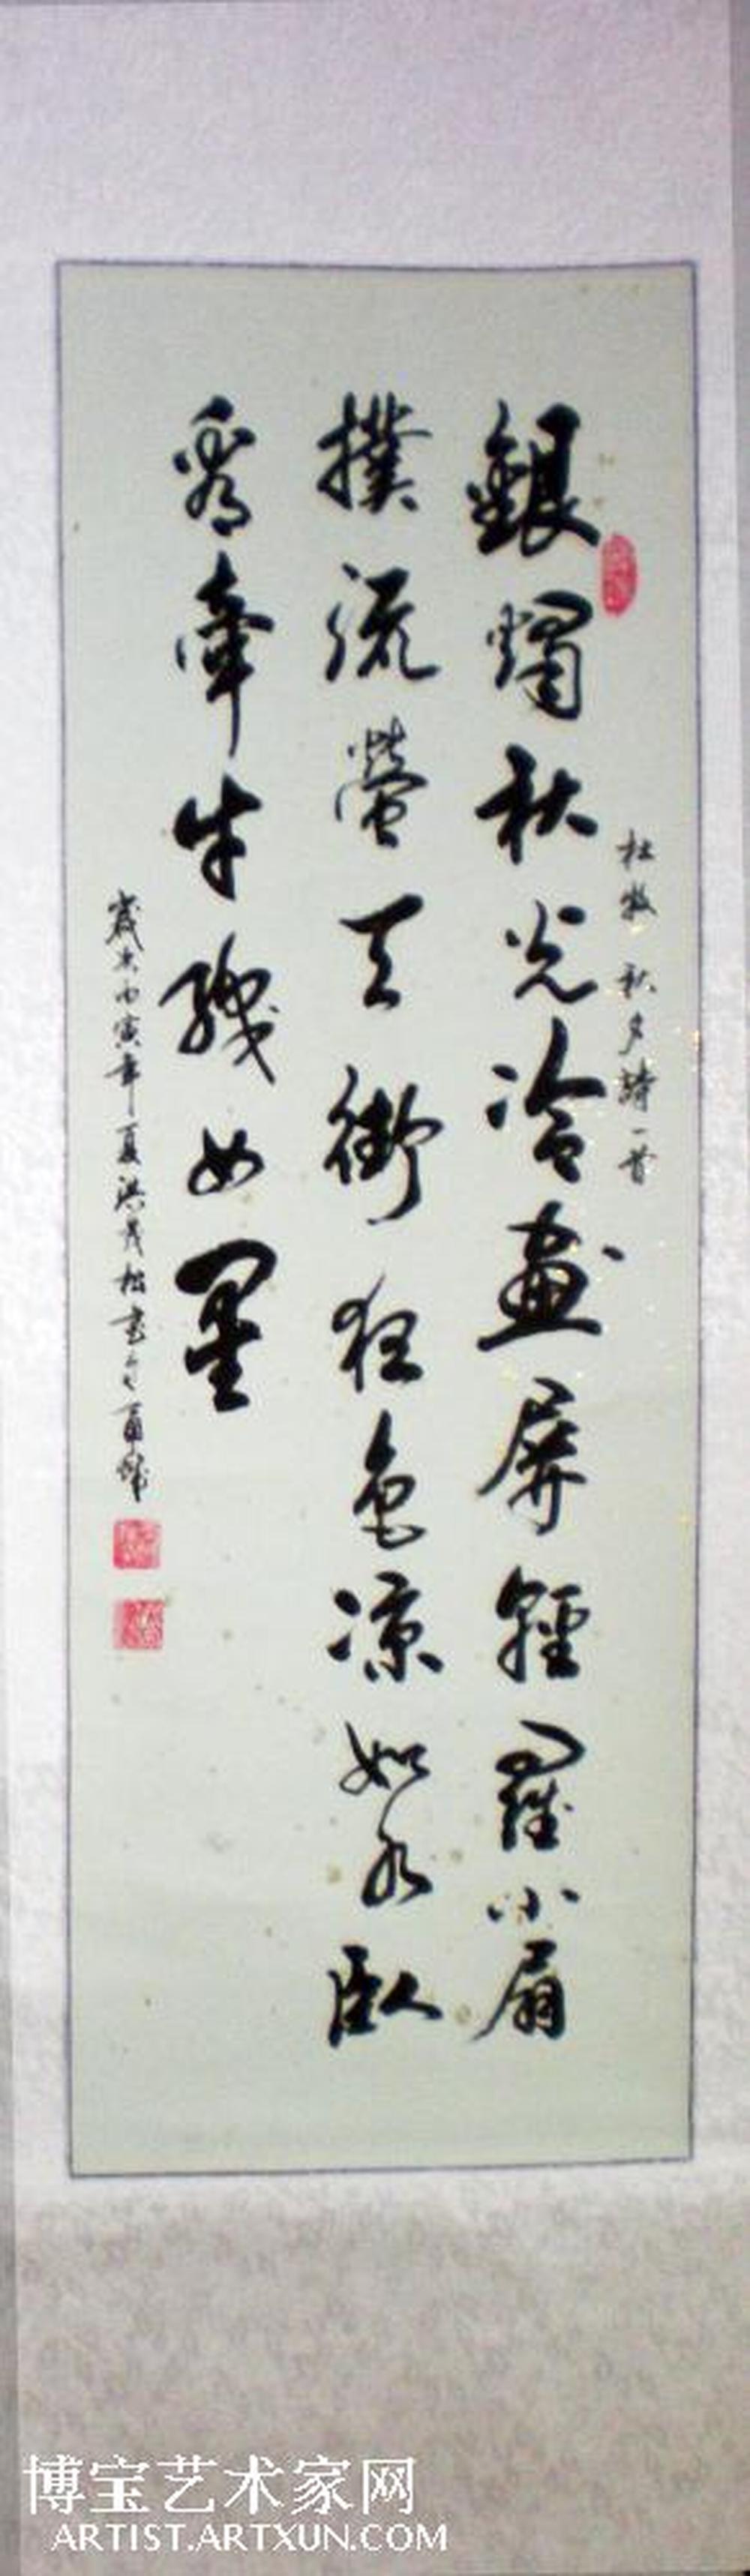 杜牧 秋夕詩一首
銀燭秋光冷畫屏輕羅小扇
撲流螢天街狂色凉如水臥
看牽牛織女星
歲次丙寅年夏洪茂松書於
博宝艺术家网
ARTIST.ARTXUN.COM